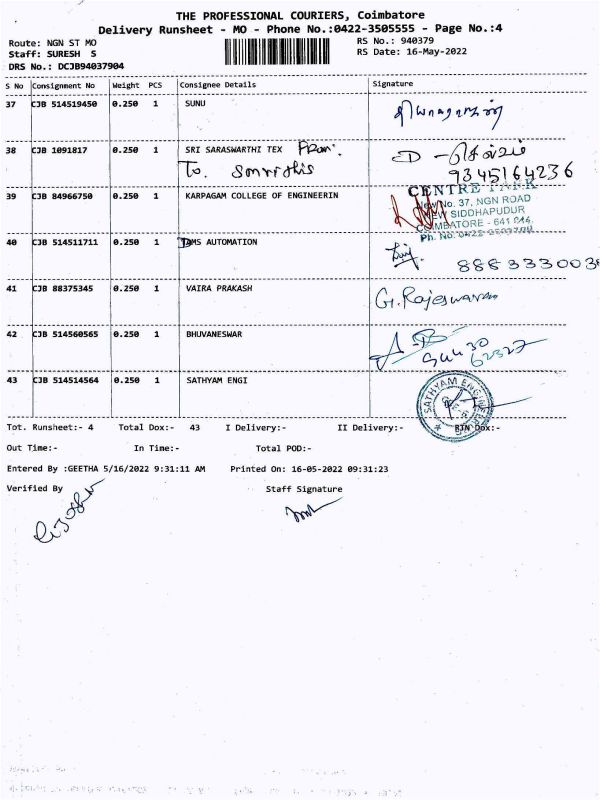 THE PROFESSIONAL COURIERS, Coimbatore
Delivery Runsheet - MO - Phone No.:0422-3505555 - Page No.:4
Route: NGN ST MO
Staff: SURESH S
DRS No.: DCJB94037904
RS No.: 940379
RS Date: 16-May-2022
S No Consignment No Weight PCS Consignee Details Signature
37 CJB 514519450 0.250 1 SUNU
38 CJB 1091817 0.250 1 SRI SARASWARTHI TEX From:
To.
D - செல்வம்
9345164236
39 CJB 84966750 0.250 1 KARPAGAM COLLEGE OF ENGINEERIN
CENTRE PARK
New No. 37, NGN ROAD
NEW SIDDHAPUDUR
COIMBATORE - 641 044.
Ph. No. 0422
40 CJB 514511711 0.250 1 TAMS AUTOMATION
41 CJB 88375345 0.250 1 VAIRA PRAKASH G. Rajeswaran
42 CJB 514560565 0.250 1 BHUVANESWAR
43 CJB 514514564 0.250 1 SATHYAM ENGI
SATHYAM ENGINEER
Tot. Runsheet:- 4 Total Dox:- 43 I Delivery:- II Delivery:- RTN Dox:-
Out Time:- In Time:- Total POD:-
Entered By :GEETHA 5/16/2022 9:31:11 AM Printed On: 16-05-2022 09:31:23
Verified By Staff Signature